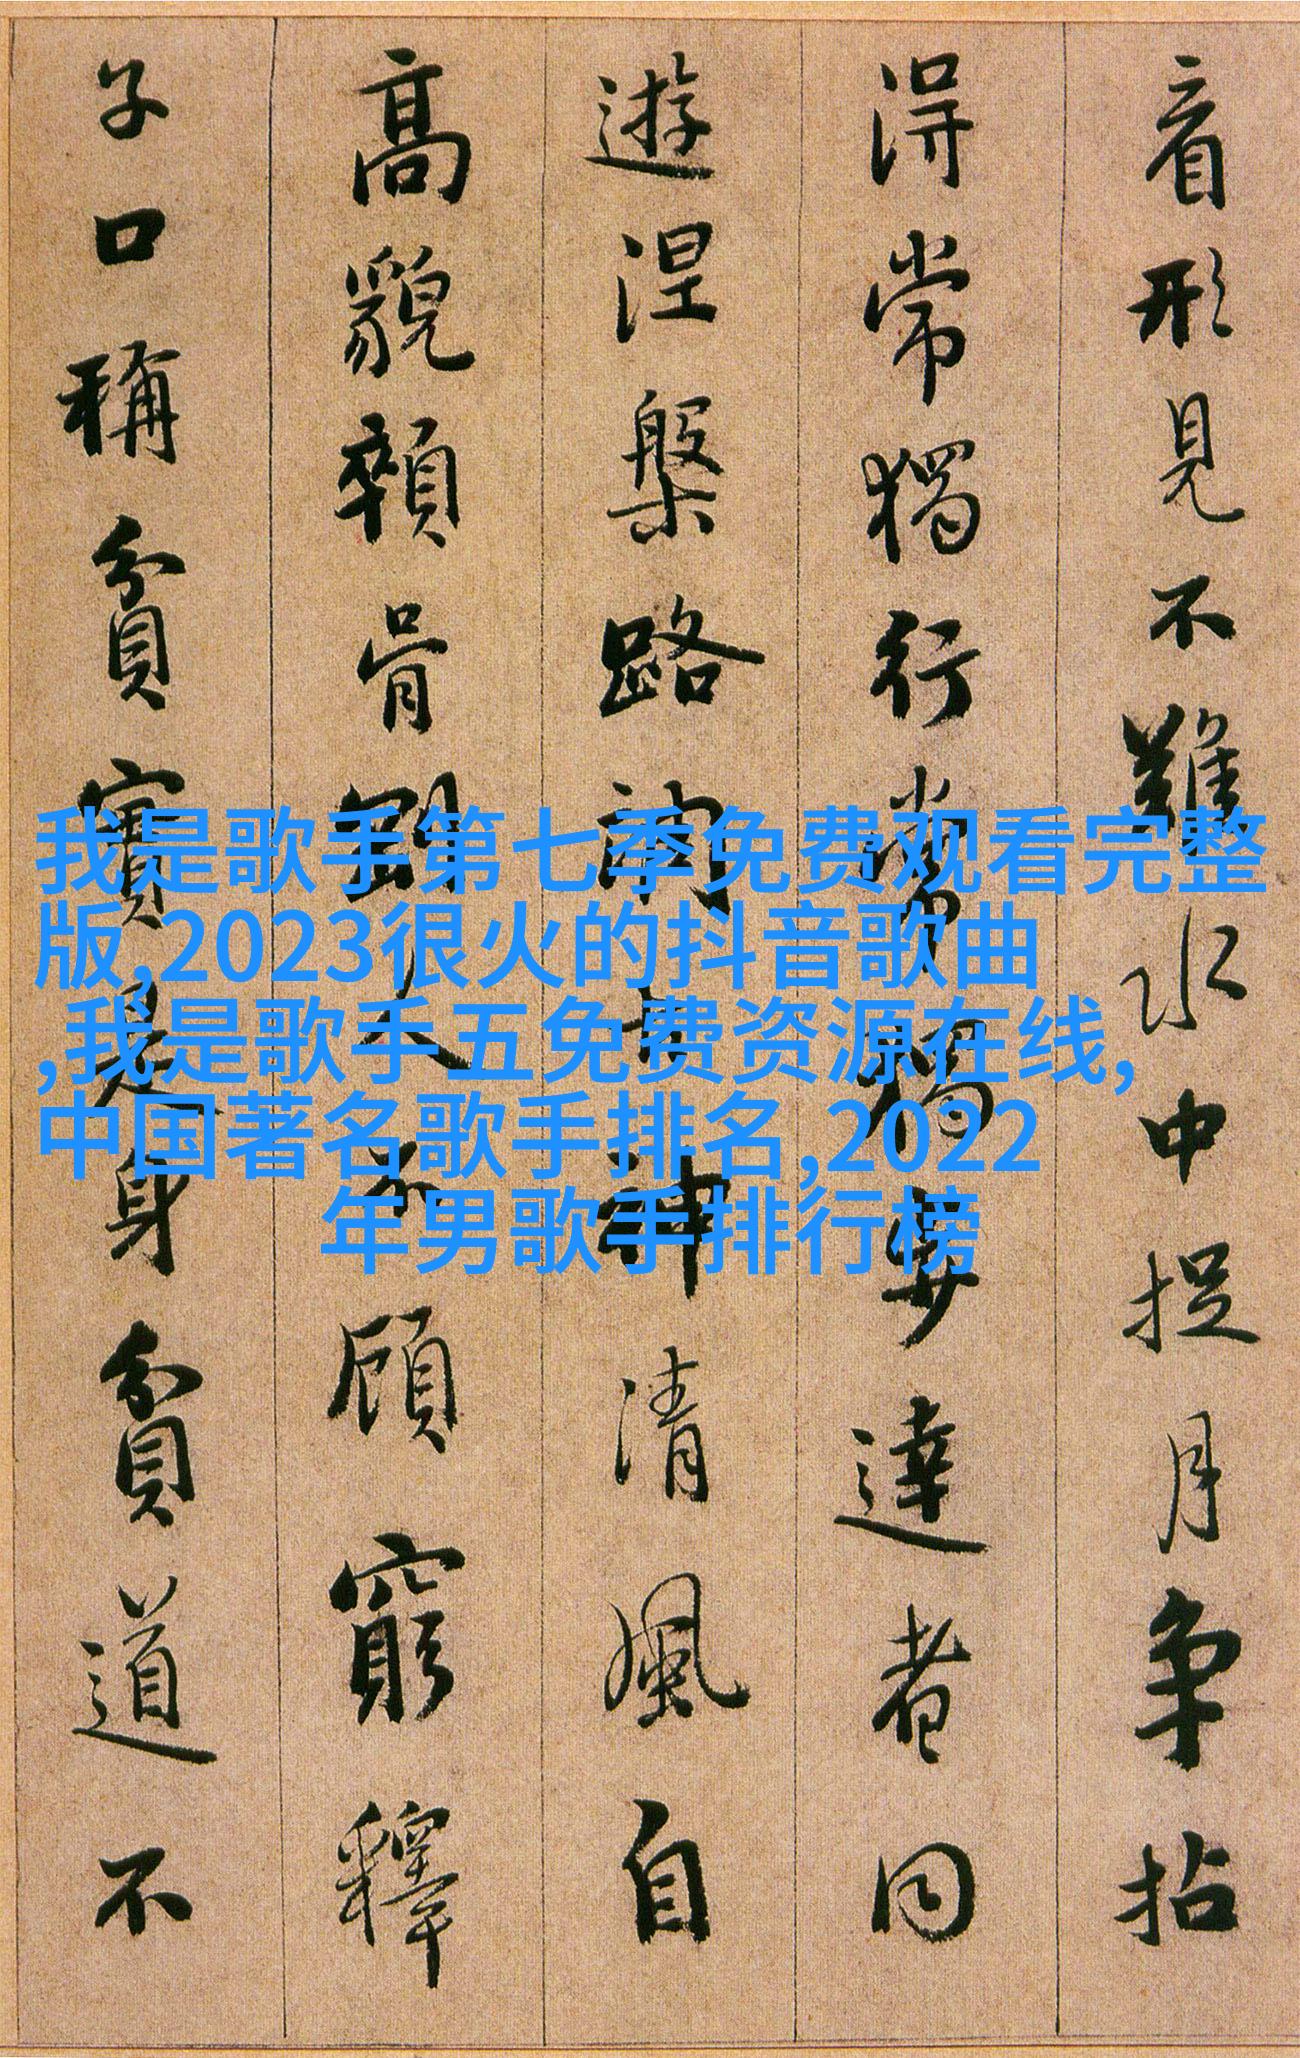 看形見不難水中捉月爭拈
得常獨行常獨步達者同
遊涅槃路調古神清風自
高貌顇骨剛人不顧窮釋
子口稱貧實是身貧道不
我是歌手第七季免费观看完整
版,2023很火的抖音歌曲
,我是歌手五免费资源在线,
中国著名歌手排名,2022
年男歌手排行榜